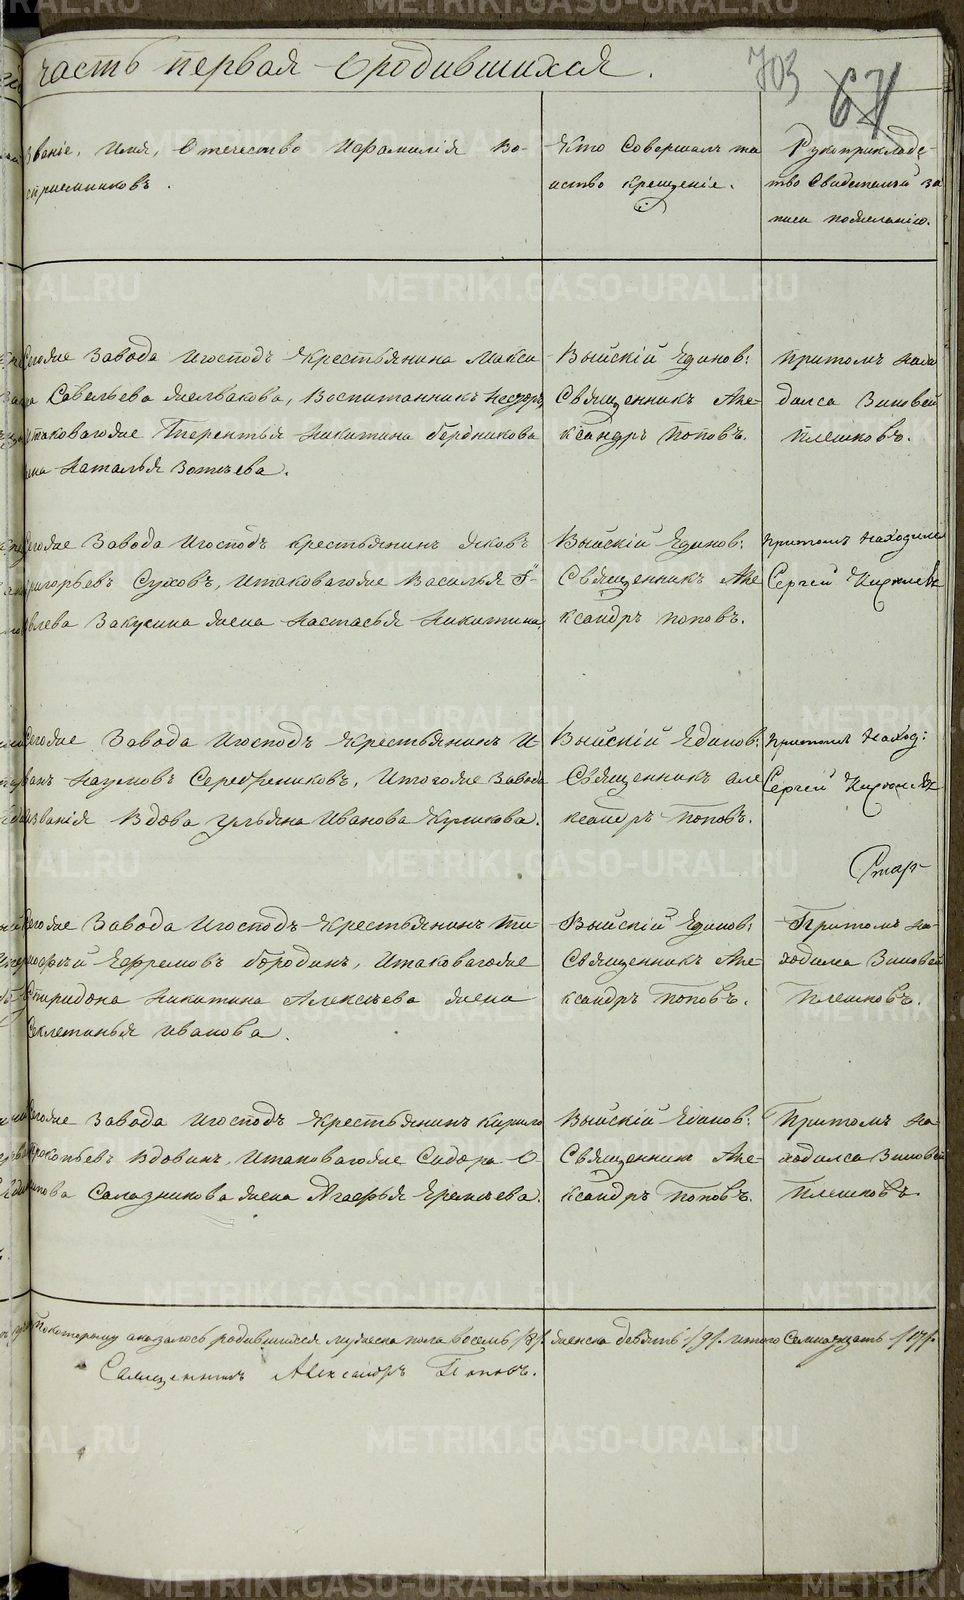 часть первая о родившихся.
703
67
Званіе, Имя, Отечество Ифамилія Во-
спріемниковъ.
Кто Совершалъ та
инство крещеніе.
Рукоприкладс-
тво Свидетелей за
писи пожеланію.
Завода Игосподъ Крестьянина Макси
Савельева Воспитанникъ
Итаковагоже Терентья Никитина
Наталья Зотѣева.
Выйскій Единов:
Священникъ Але-
ксандръ Поповъ.
Притомъ нахо
дился Зиновей
Плешковъ.
Сегоже Завода Игосподъ крестьянинъ Яковъ
Григорьевъ Суховъ, Итаковагоже Василья
Закусина жена Настасья Никитина,
Выйскій Единов:
Священникъ Але
ксандръ Поповъ.
Притомъ Находился
Сергей
Сегоже Завода Игосподъ Крестьянинъ И-
ванъ Наумовъ Серебрениковъ, Итогоже Завода
званія Вдова Ульяна Иванова Куликова.
Выйскій Единов:
Священникъ але
ксандръ Поповъ.
Притомъ Наход:
Сергей
Стар-
Сегоже Завода Игосподъ Крестьянинъ Ти-
мофей Ефремовъ Бородинъ, Итаковагоже
Спиридона Никитина Алексѣева жена
Секлетинья Иванова.
Выйскій Единов:
Священникъ Але-
ксандръ Поповъ.
Притомъ на-
ходился Зиновей
Плешковъ.
Сегоже Завода Игосподъ Крестьянинъ Кирило
Прокопьевъ Вдовинъ, Итаковагоже Сидора О
сипова Салазникова жена Агафья Еремѣева.
Выйскій Единов:
Священникъ Але-
ксандръ Поповъ.
Притомъ На-
ходился Зиновей
Плешковъ.
Покоторому оказалось родившихся мужеска пола восемь /8/. женска девять /9/. итого Семнадцать /17/.
Священникъ Александръ Поповъ.
METRIKI.GASO-URAL.RU